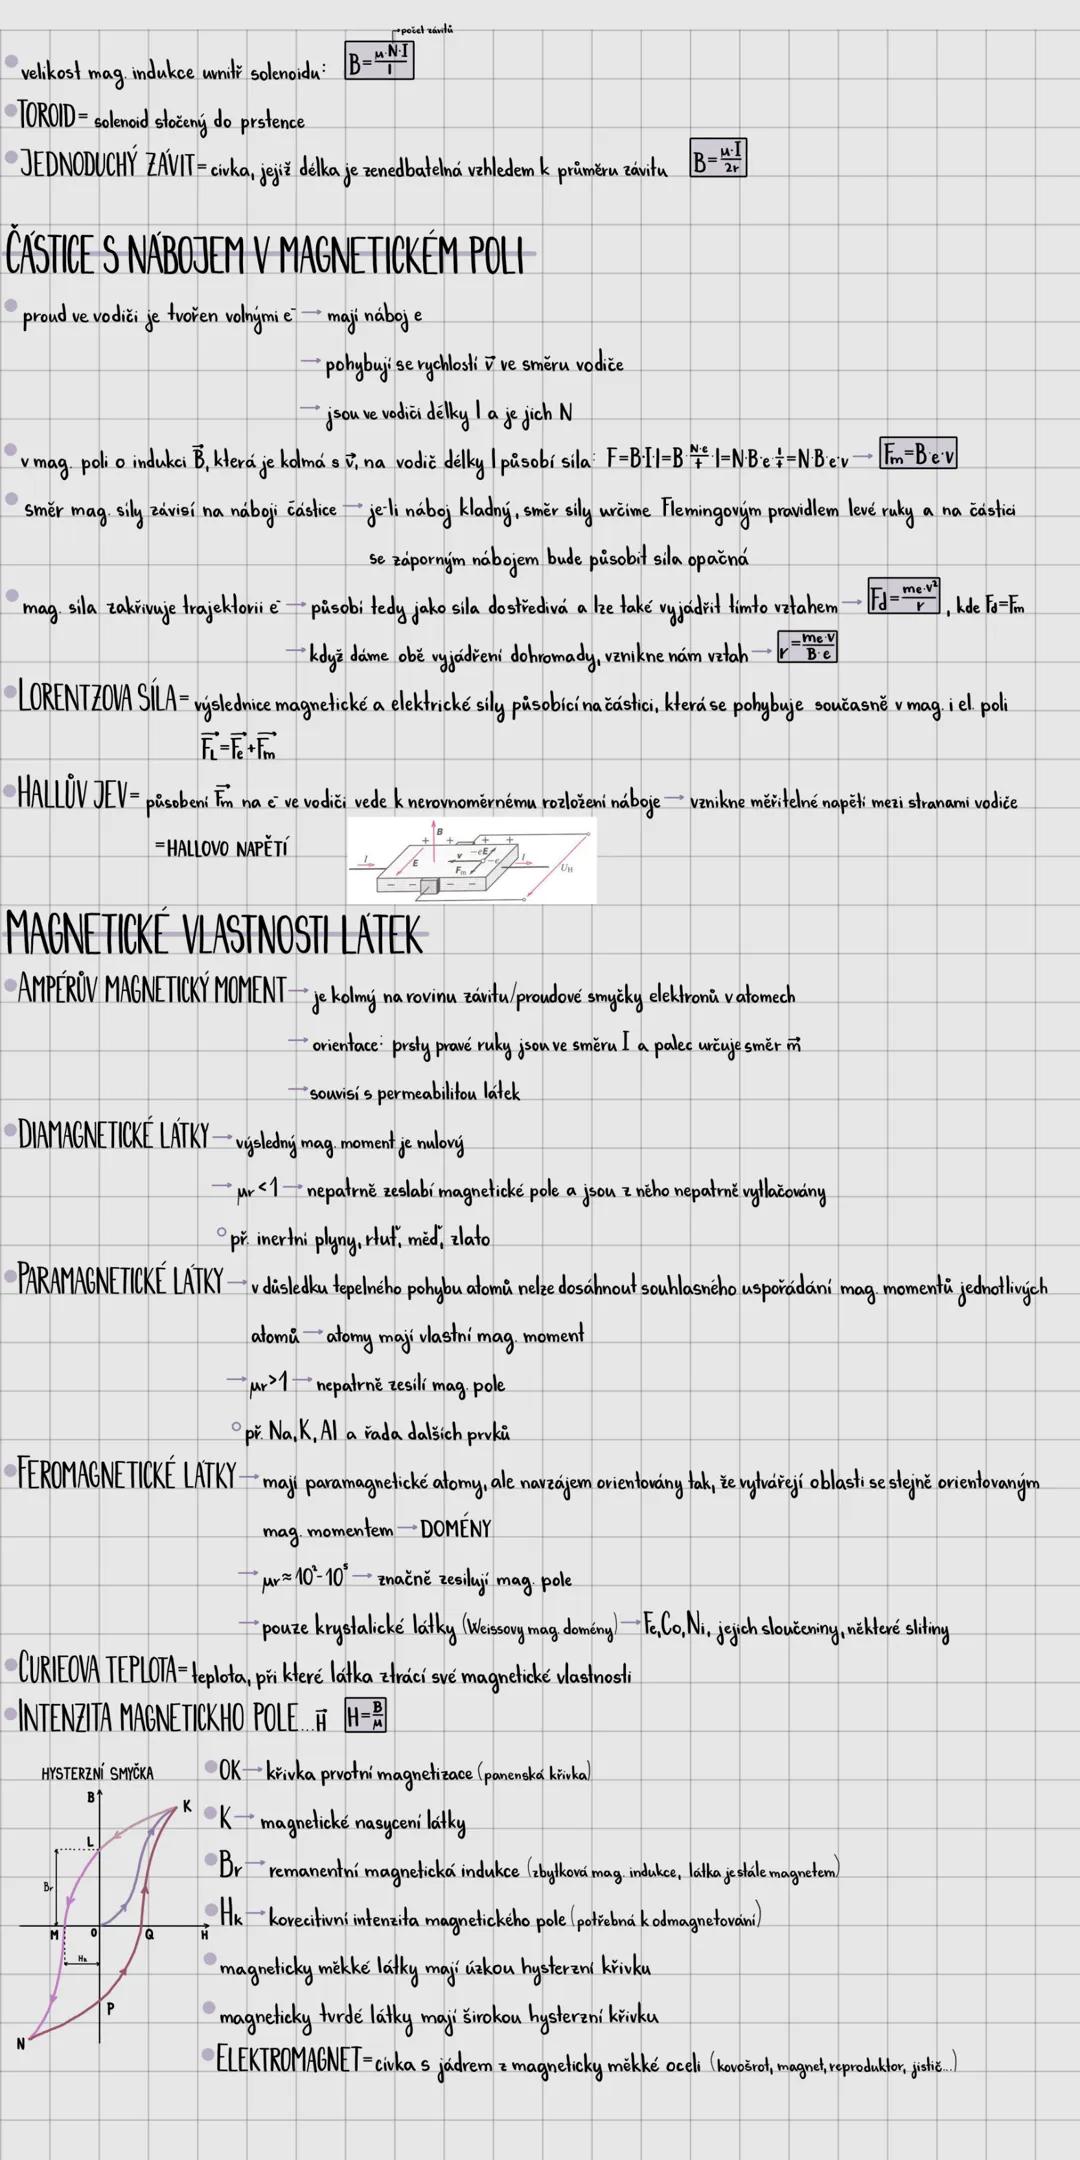 počet závitů
velikost mag. indukce uvnitř solenoidu: B=μ·N·I/l
TOROID= solenoid stočený do prstence
JEDNODUCHÝ ZÁVIT= cívka, jejíž délka je zenedbatelná vzhledem k průměru závitu B=μ·I/2r
ČÁSTICE S NÁBOJEM V MAGNETICKÉM POLI
proud ve vodiči je tvořen volnými e⁻ → mají náboj e
→ pohybují se rychlostí v⃗ ve směru vodiče
→ jsou ve vodiči délky l a je jich N
v mag. poli o indukci B⃗, která je kolmá s v⃗, na vodič délky l působí síla: F=B·I·l=B·N·e/t·l=N·B·e·l/t=N·B·e·v → Fm=B·e·v
směr mag. síly závisí na náboji částice → je-li náboj kladný, směr síly určíme Flemingovým pravidlem levé ruky a na částici
se záporným nábojem bude působit síla opačná
mag. síla zakřivuje trajektorii e⁻ → působí tedy jako síla dostředivá a lze také vyjádřit tímto vztahem → Fd=me·v²/r, kde Fd=Fm
→ když dáme obě vyjádření dohromady, vznikne nám vztah → r=me·v/B·e
LORENTZOVA SÍLA= výslednice magnetické a elektrické síly působící na částici, která se pohybuje současně v mag. i el. poli
F⃗L=F⃗e+F⃗m
HALLŮV JEV= působení F⃗m na e⁻ ve vodiči vede k nerovnoměrnému rozložení náboje → vznikne měřitelné napětí mezi stranami vodiče
=HALLOVO NAPĚTÍ
B + + + + I E v -eE -e Fm I UH − − − −
MAGNETICKÉ VLASTNOSTI LÁTEK
AMPÉRŮV MAGNETICKÝ MOMENT → je kolmý na rovinu závitu/proudové smyčky elektronů v atomech
→ orientace: prsty pravé ruky jsou ve směru I a palec určuje směr m⃗
→ souvisí s permeabilitou látek
DIAMAGNETICKÉ LÁTKY → výsledný mag. moment je nulový
→ μr<1 → nepatrně zeslabí magnetické pole a jsou z něho nepatrně vytlačovány
př. inertní plyny, rtuť, měď, zlato
PARAMAGNETICKÉ LÁTKY → v důsledku tepelného pohybu atomů nelze dosáhnout souhlasného uspořádání mag. momentů jednotlivých
atomů → atomy mají vlastní mag. moment
→ μr>1 → nepatrně zesílí mag. pole
př. Na, K, Al a řada dalších prvků
FEROMAGNETICKÉ LÁTKY → mají paramagnetické atomy, ale navzájem orientovány tak, že vytvářejí oblasti se stejně orientovaným
mag. momentem → DOMÉNY
→ μr≈10²-10⁵ → značně zesilují mag. pole
→ pouze krystalické látky (Weissovy mag. domény) → Fe, Co, Ni, jejich sloučeniny, některé slitiny
CURIEOVA TEPLOTA= teplota, při které látka ztrácí své magnetické vlastnosti
INTENZITA MAGNETICKHO POLE...H⃗ H=B/μ
HYSTERZNÍ SMYČKA
B K L Br M O Q H Hk P N
OK → křivka prvotní magnetizace (panenská křivka)
K → magnetické nasycení látky
Br → remanentní magnetická indukce (zbytková mag. indukce, látka je stále magnetem)
Hk → korecitivní intenzita magnetického pole (potřebná k odmagnetování)
magneticky měkké látky mají úzkou hysterzní křivku
magneticky tvrdé látky mají širokou hysterzní křivku
ELEKTROMAGNET= cívka s jádrem z magneticky měkké oceli (kovošrot, magnet, reproduktor, jistič...)